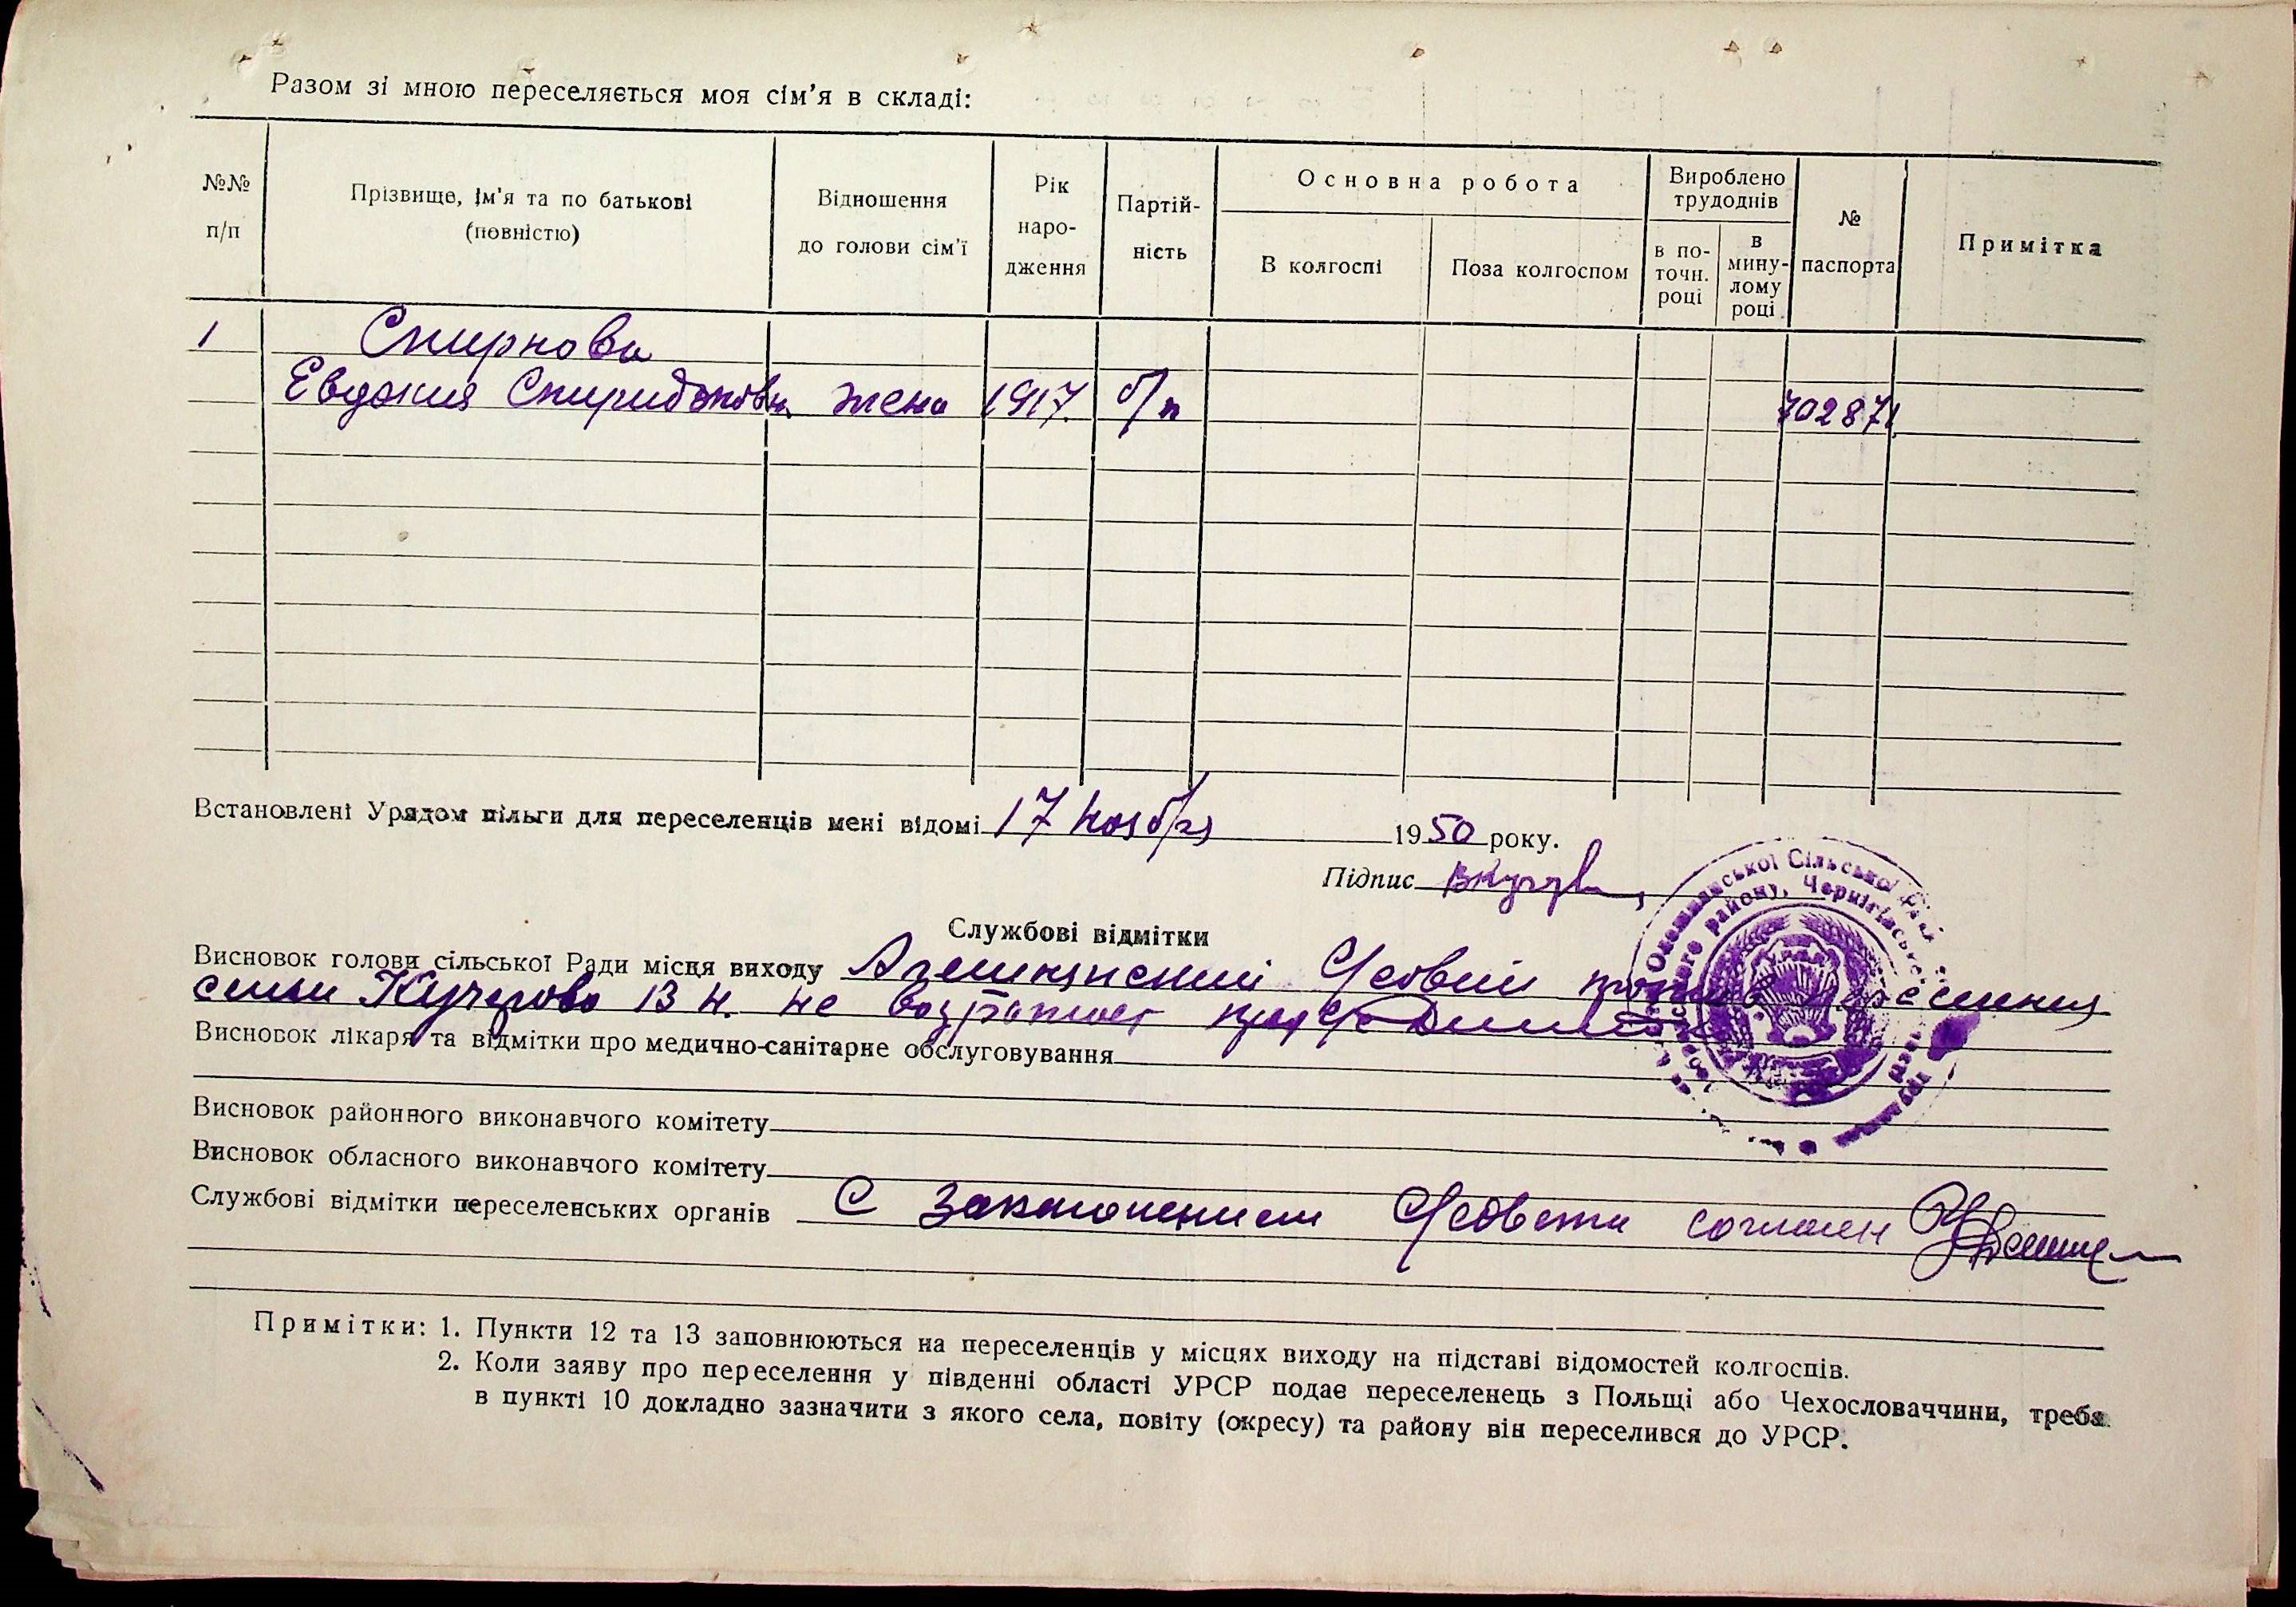 Разом зі мною переселяється моя сім'я в складі:
№№ п/п
Прізвище, ім'я та по батькові (повністю)
Відношення до голови сім'ї
Рік наро- дження
Партій- ність
Основна робота
В колгоспі
Поза колгоспом
Вироблено трудоднів
в по- точн. році
в мину- лому році
№ паспорта
Примітка
1 Смирнова
Евдокия Спиридоновн. жена 1917 б/п 702871
Встановлені Урядом пільги для переселенців мені відомі 17 ноября 1950 року.
Підпис
Службові відмітки
Висновок голови сільської Ради місця виходу Алешинский С/совет против переселения
семьи Кучерова В Н. не возражает пред С/С
Висновок лікаря та відмітки про медично-санітарне обслуговування
Висновок районного виконавчого комітету
Висновок обласного виконавчого комітету
Службові відмітки переселенських органів С заключением С/совета согласен
Примітки: 1. Пункти 12 та 13 заповнюються на переселенців у місцях виходу на підставі відомостей колгоспів.
2. Коли заяву про переселення у південні області УРСР подає переселенець з Польщі або Чехословаччини, треба
в пункті 10 докладно зазначити з якого села, повіту (окресу) та району він переселився до УРСР.